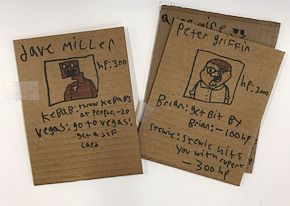 dave miller
hp:300
KEBAB: throw KEBABS
at people, -20
Vegas: go to vegas:
get a gif
card
peter griffin
hp:2000
Brian: get Bit BY
Brian: -100hp
stewie: stewie hits
you with rupert
-300hp